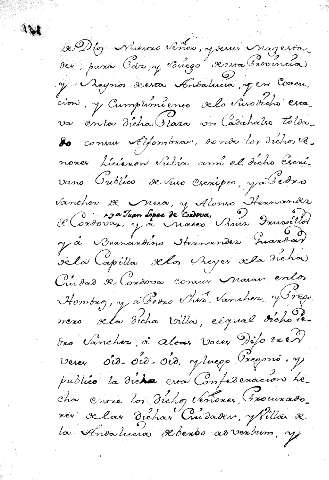 de Dios Nuestro Señor, y de sus Magesta-
des, para Paz, y Sosiego de esta Provincia
y Reynos de esta Andalucia, y en Execu-
cion, y Cumplimiento de lo Susodicho esta-
va en la dicha Plaza un Cadahalso tolda-
do con sus Alfombras, donde los dichos Se-
ñores hicieron Subir ami el dicho Escri-
vano Publico de Suso escripto, y a Pedro
Sanchez de Mesa, y Alonso Hernandez
y a Juan Lopez de Cordova
de Cordova, y a Matheo Ruiz
y á Bernardino Hernandez Guardas
de la Capilla de los Reyes de la dicha
Ciudad de Cordova con sus Mazas en los
Hombros, y a Pedro Sanchez, y Prego-
nero de la dicha Villa, el qual dicho Pe-
dro Sanchez, á altas voces Dijo tres
veces oid-oid-oid, y luego Pregonó, y
publicó la dicha esta Confederacion he-
cha entre los dichos Señores Procurado-
res de las dichas Ciudades, y Villas de
la Andalucia de berbo ad verbum, y